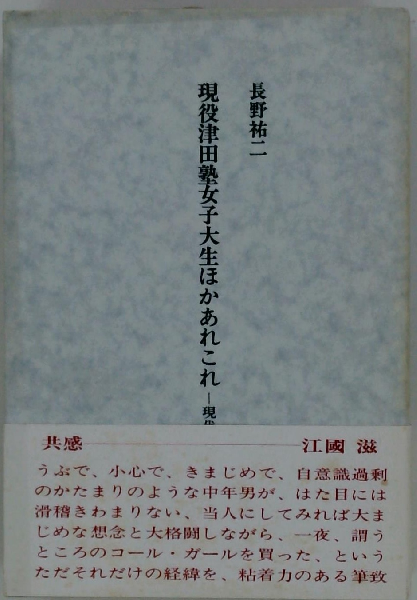 長野祐二
現役津田塾女子大生ほかあれこれ―現
共感――――――江國 滋
うぶで、小心で、きまじめで、自意識過剰
のかたまりのような中年男が、はた目には
滑稽きわまりない、当人にしてみれば大ま
じめな想念と大格闘しながら、一夜、謂う
ところのコール・ガールを買った、という
ただそれだけの経緯を、粘着力のある筆致